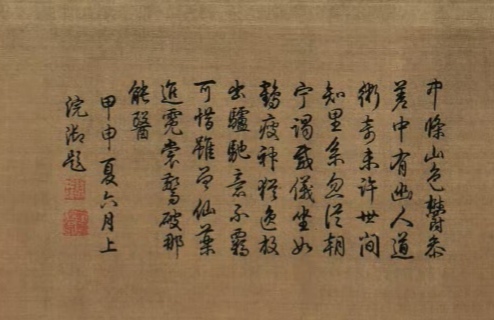 中條山色鬱參
差中有幽人道
術奇未許世間
知里系忽從朝
宁謁威儀坐如
鶴瘦神猶逸放
出驢馳意不羈
可惜雖曾仙藥
進霓裳驚破那
能醫
甲申夏六月上
浣御題